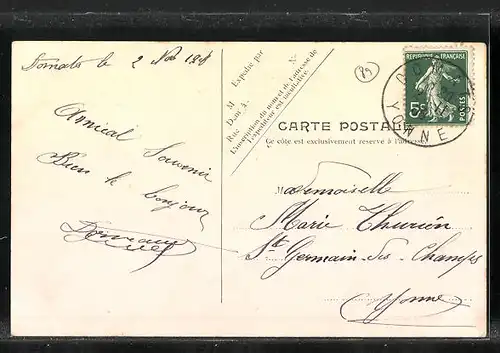 le 2
Amical Souvenir
Bien le bonjour
Expédié par
M
Dem. à
Rue
N°
L'inscription du nom et de l'adresse de
l'expéditeur est facultative.
CARTE POSTALE
Ce côté est exclusivement réservé à l'adresse
Mademoiselle
Marie
St Germain des Champs
Yonne
RÉPUBLIQUE FRANÇAISE
5c
POSTES
YONNE
89